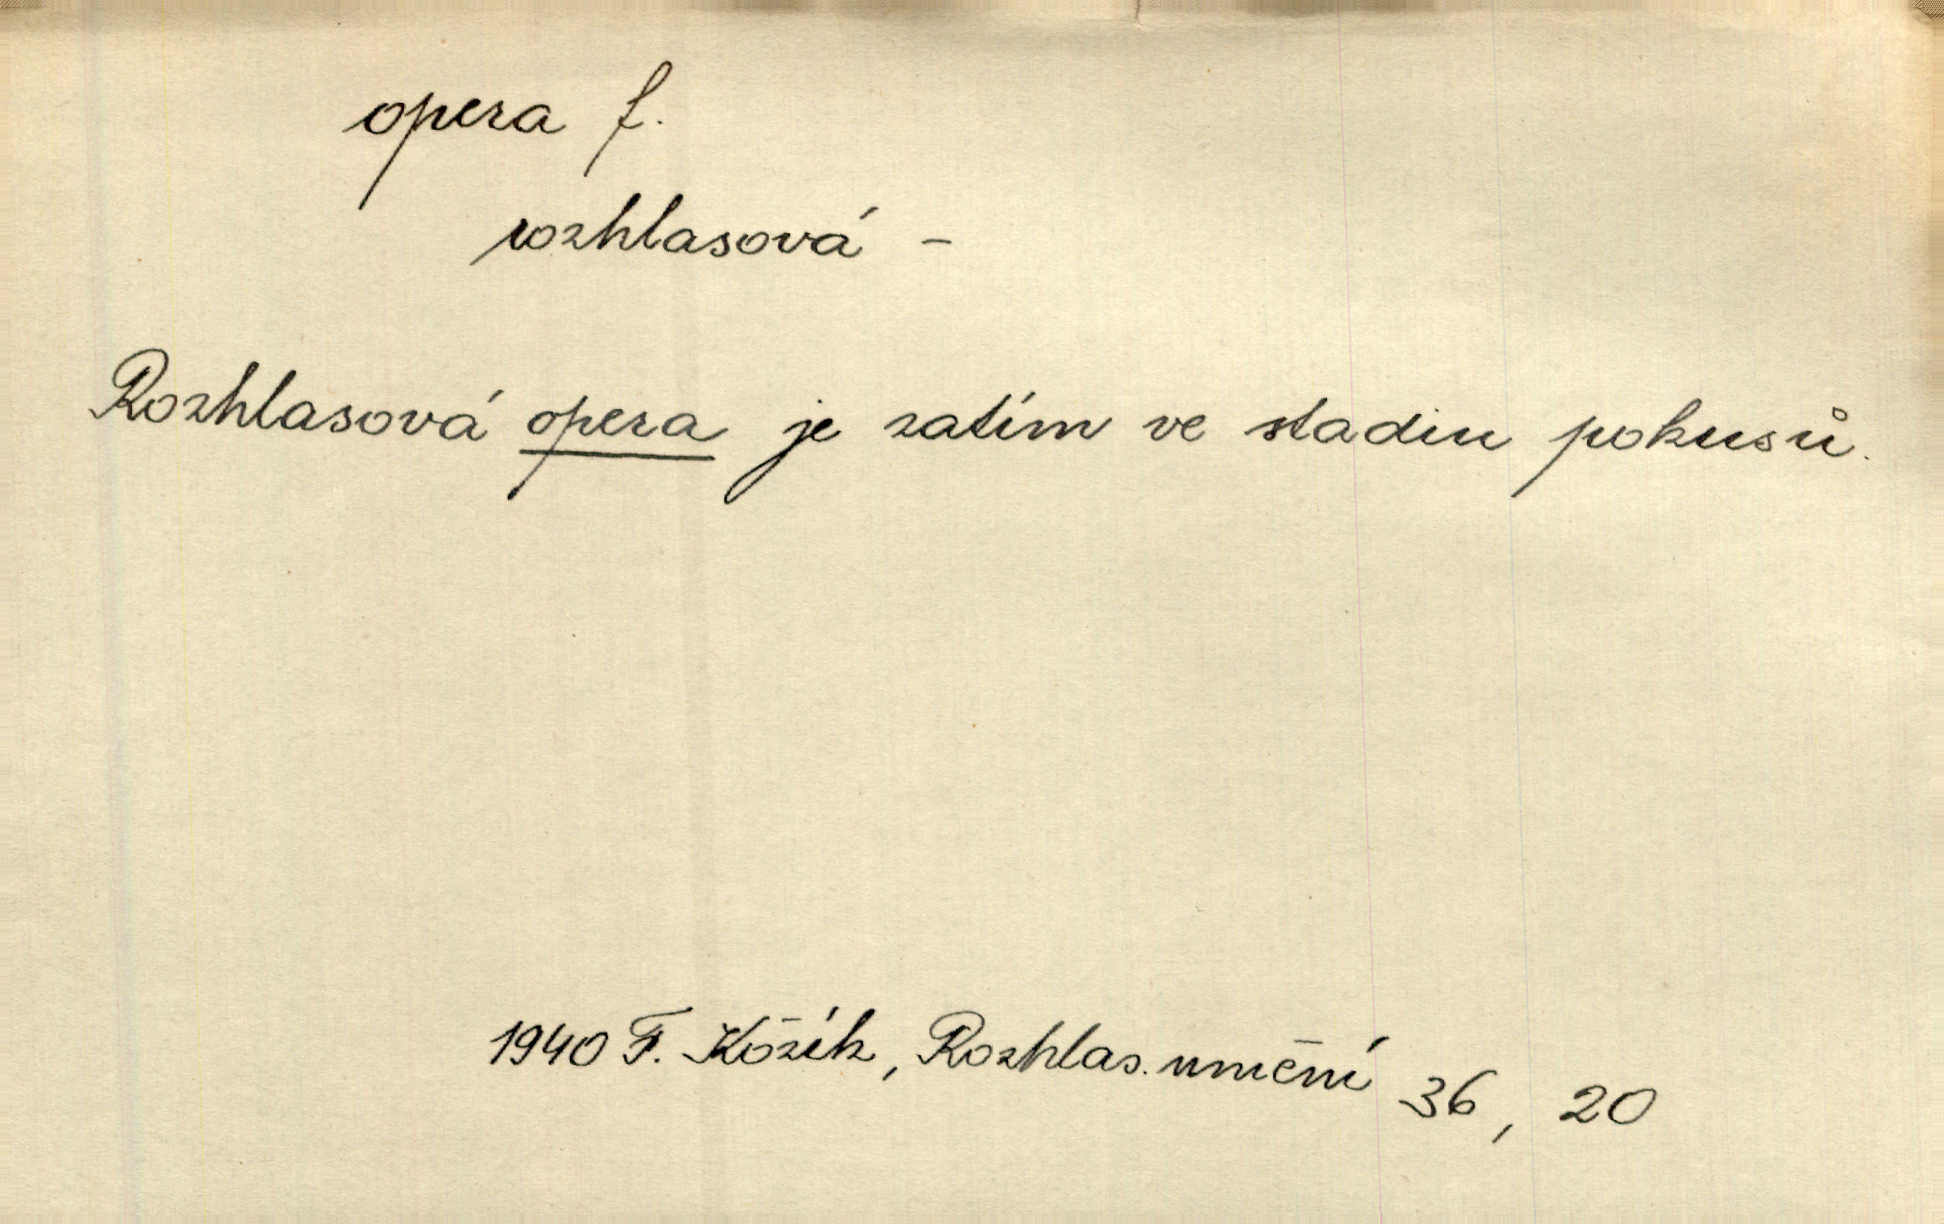 opera f.
rozhlasová -
Rozhlasová opera je zatím ve stadiu pokusů.
1940 F. Kožík, Rozhlas. umění 36, 20